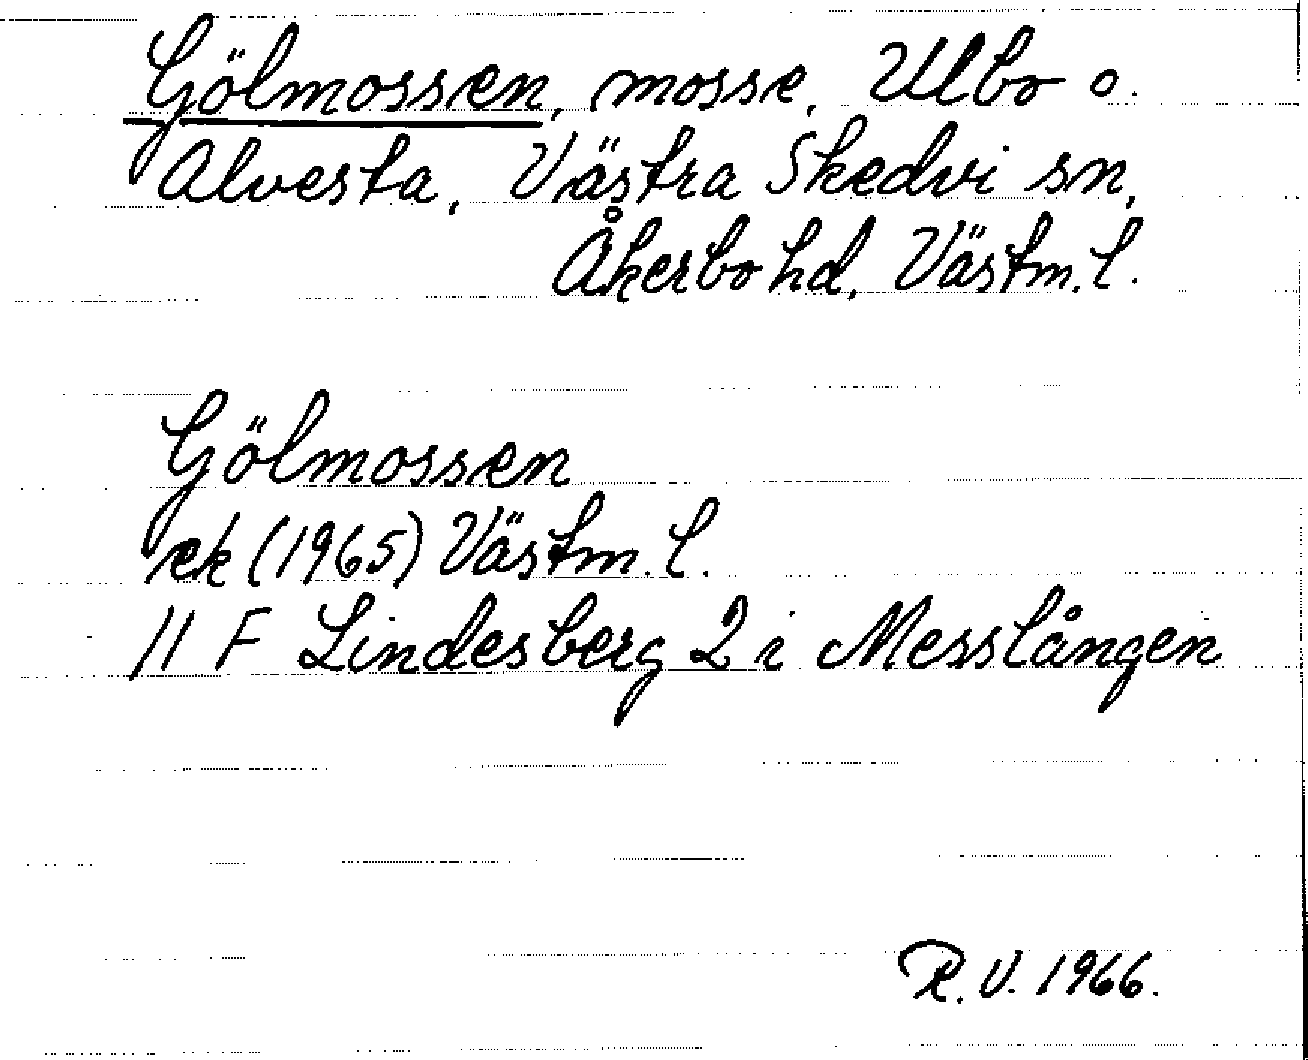 Gölmossen, mosse, Ulbo o.
Alvesta, Västra Skedvi sn,
Åkerbo hd, Västm. l.
Gölmossen
ek (1965) Västm. l.
11 F Lindesberg 2 i Messlången
R. V. 1966.